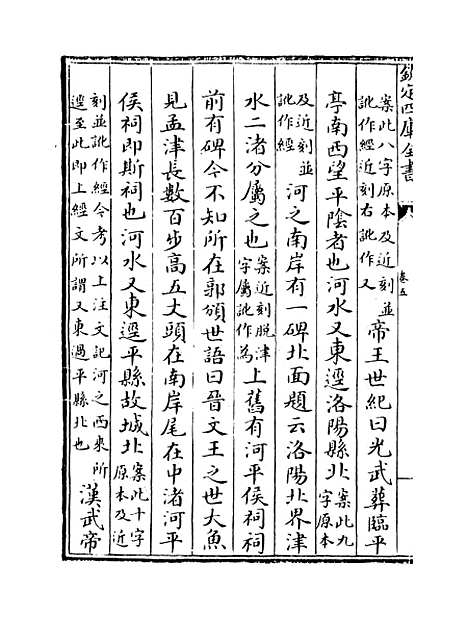 欽定四庫全書
卷五
案此八字原本及近刻並
訛作經近刻右訛作又
帝王世紀曰光武葬臨平
亭南西望平陰者也河水又東逕洛陽縣北
案此九
字原本
及近刻並
訛作經
河之南岸有一碑北面題云洛陽北界津
水二渚分屬之也
案近刻脫津
字屬訛作為
上舊有河平侯祠祠
前有碑今不知所在郭頒世語曰晉文王之世大魚
見孟津長數百步高五丈頭在南岸尾在中渚河平
侯祠即斯祠也河水又東逕平縣故城北
案此十字
原本及近
刻並訛作經今考以上注文記河之西來所
逕至此即上經文所謂又東過平縣北也
漢武帝